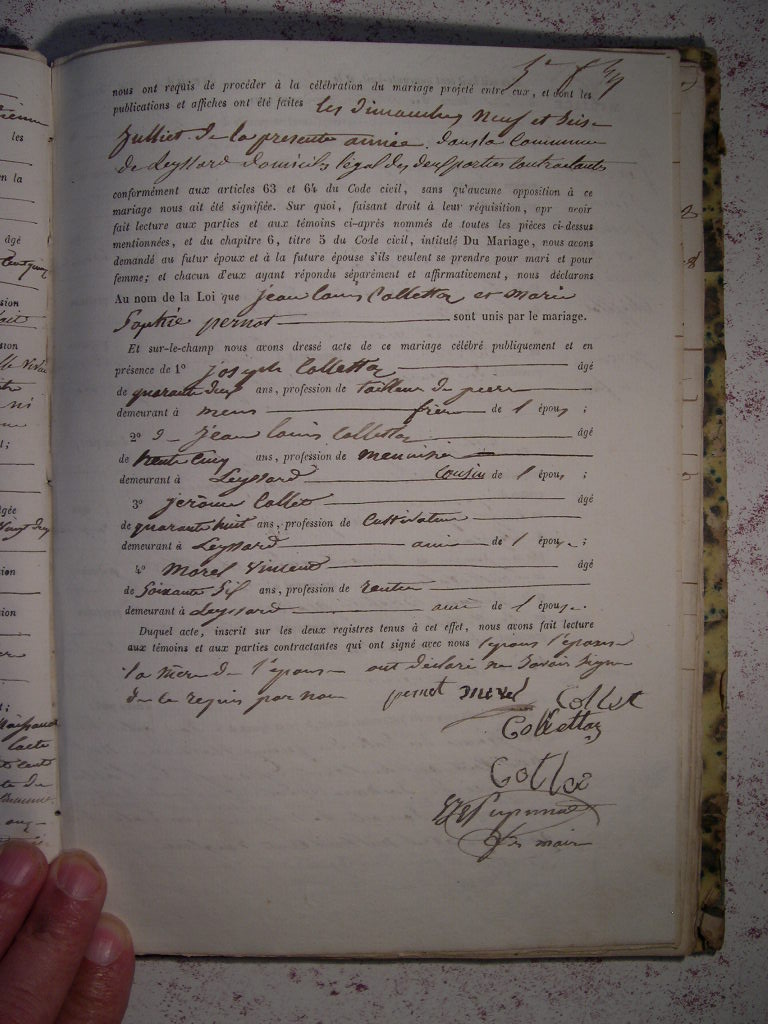 nous ont requis de procéder à la célébration du mariage projeté entre eux, et dont les
publications et affiches ont été faites les dimanches neuf et seize
Julliet de la presente année. dans la Commune
de Leyssard domicile légal des deux parties Contractantes
conformément aux articles 63 et 64 du Code civil, sans qu'aucune opposition à ce
mariage nous ait été signifiée. Sur quoi, faisant droit à leur réquisition, apr avoir
fait lecture aux parties et aux témoins ci-après nommés de toutes les pièces ci-dessus
mentionnées, et du chapitre 6, titre 5 du Code civil, intitulé Du Mariage, nous avons
demandé au futur époux et à la future épouse s'ils veulent se prendre pour mari et pour
femme; et chacun d'eux ayant répondu séparément et affirmativement, nous déclarons
Au nom de la Loi que jean louis Collettaz et marie
Sophie pernot sont unis par le mariage.
Et sur-le-champ nous avons dressé acte de ce mariage célébré publiquement et en
présence de 1° joseph Collettaz âgé
de quarante deux ans, profession de tailleur de pierre
demeurant à frère de l'époux ;
2° jean louis Collettaz âgé
de trente Cinq ans, profession de menuisier
demeurant à Leyssard Cousin de l'époux ;
3° jerôme Collet âgé
de quarante huit ans, profession de Cultivateur
demeurant à Leyssard ami de l'épou. ;
4° Morel Vincent âgé
de Soixante Six ans, profession de rentier
demeurant à Leyssard ami de l'époux.
Duquel acte, inscrit sur les deux registres tenus à cet effet, nous avons fait lecture
aux témoins et aux parties contractantes qui ont signé avec nous l'epoux l'épouse
la mère de l'épouse ont déclaré ne Savoir Signer
de ce requis par nous pernot morel Collet
Collettaz